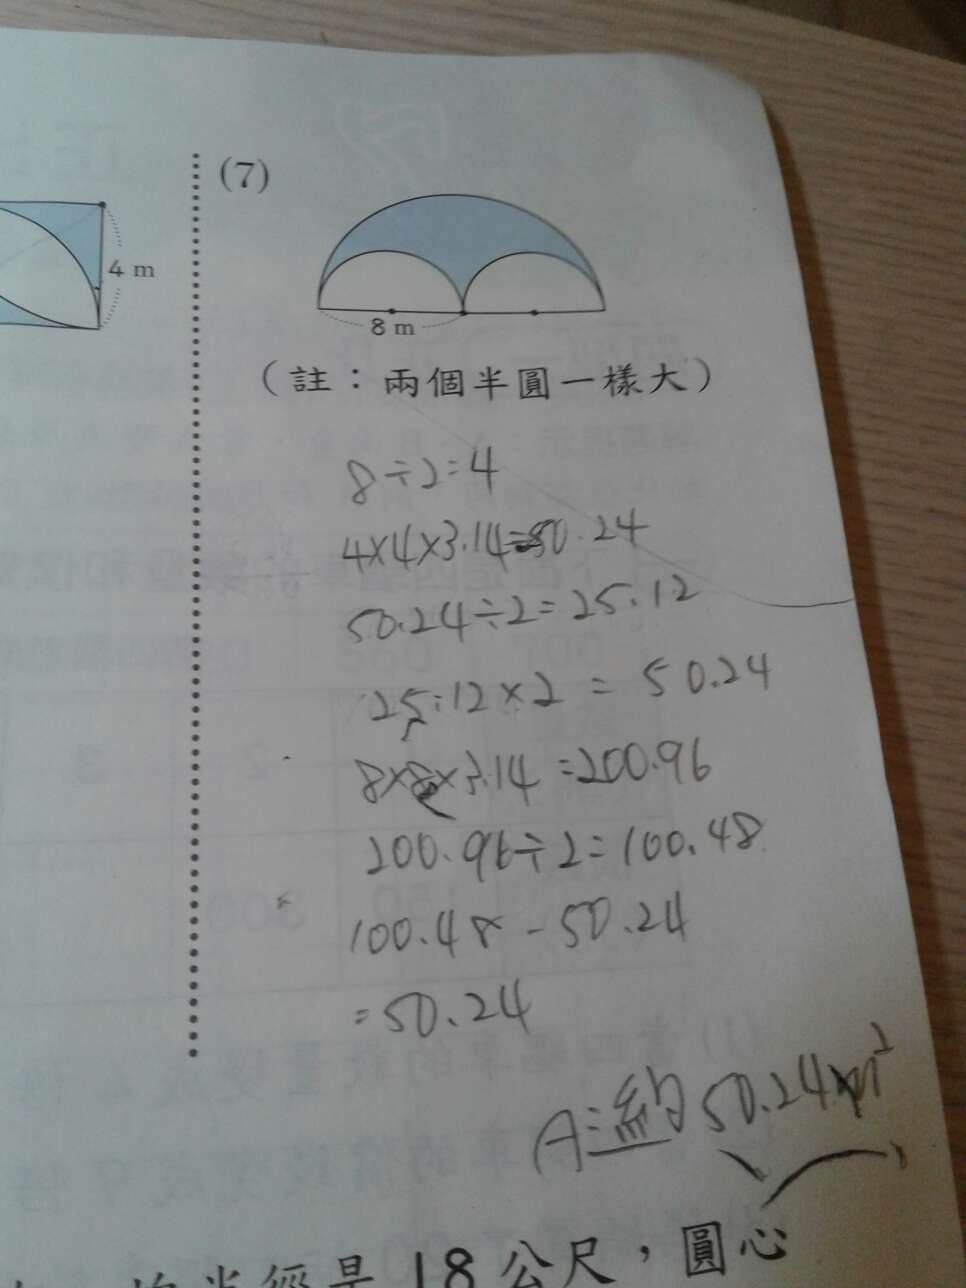 (7)
4 m
8 m
(註：兩個半圓一樣大)
8÷2=4
4×4×3.14=50.24
50.24÷2=25.12
25.12×2=50.24
8×8×3.14=200.96
200.96÷2=100.48
100.48-50.24
=50.24
A:約50.24m²
半徑是18公尺，圓心